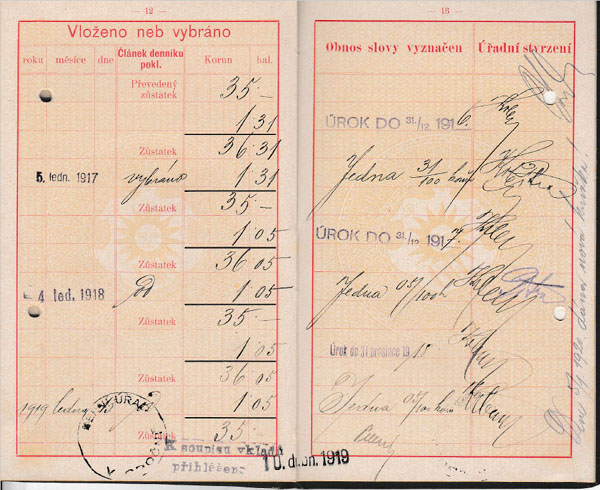 — 12 —
Vloženo neb vybráno
roku měsíce dne Článek denníku pokl. Korun hal.
Převedený zůstatek 35 —
1 31
Zůstatek 36 31
5. ledn. 1917 vybráno 1 31
Zůstatek 35 —
1 05
Zůstatek 36 05
4 led. 1918 1 05
Zůstatek 35 —
1 05
Zůstatek 36 05
1919 ledna 1 05
Zůstatek 35 —
K soupisu vkladů
přihlášeno
10. dubn. 1919
— 13 —
Obnos slovy vyznačen Úřadní stvrzení
ÚROK DO 31./12. 1916.
Jedna 31/100 kor
ÚROK DO 31./12. 1917.
Jedna 05/100 k
Úrok do 31 prosince 1918
Jedna 05/100 kor
1920 dána nová knížka!